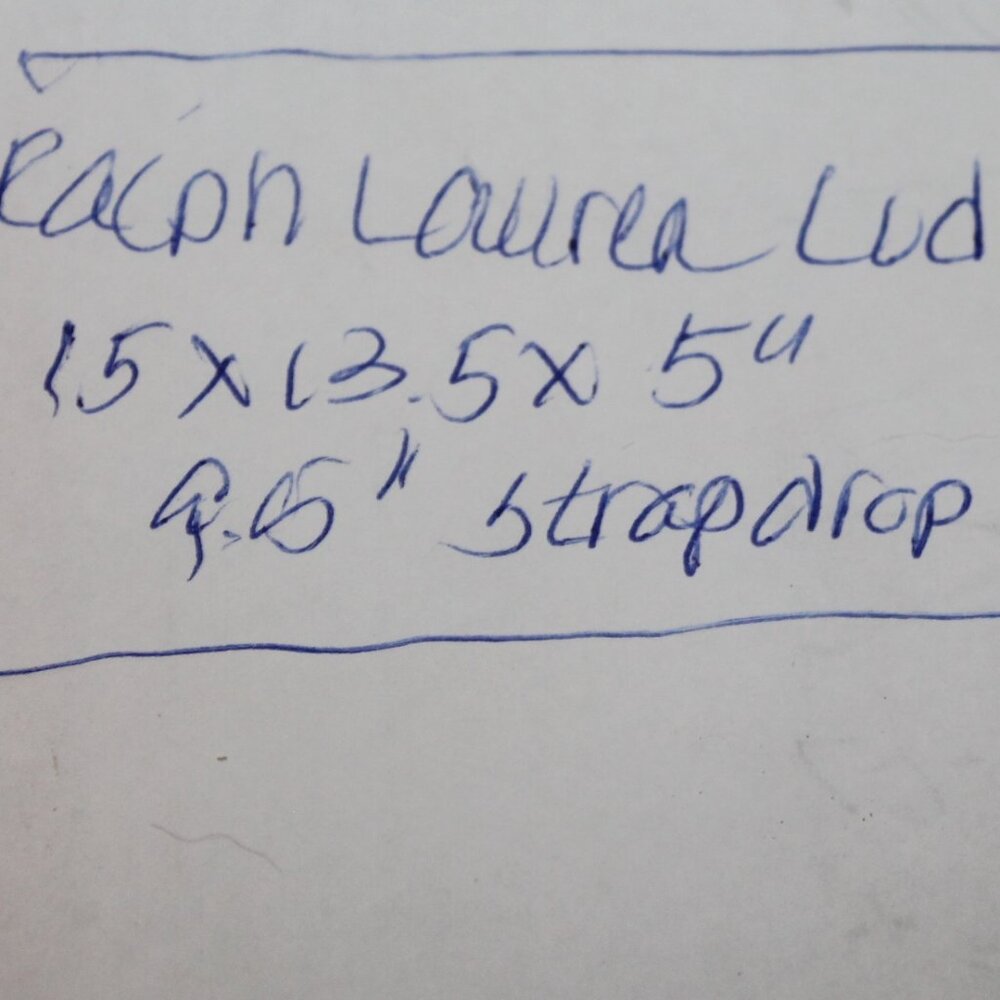 Ralph Lauren Lud
15 x 13.5 x 5"
9.5" strap drop